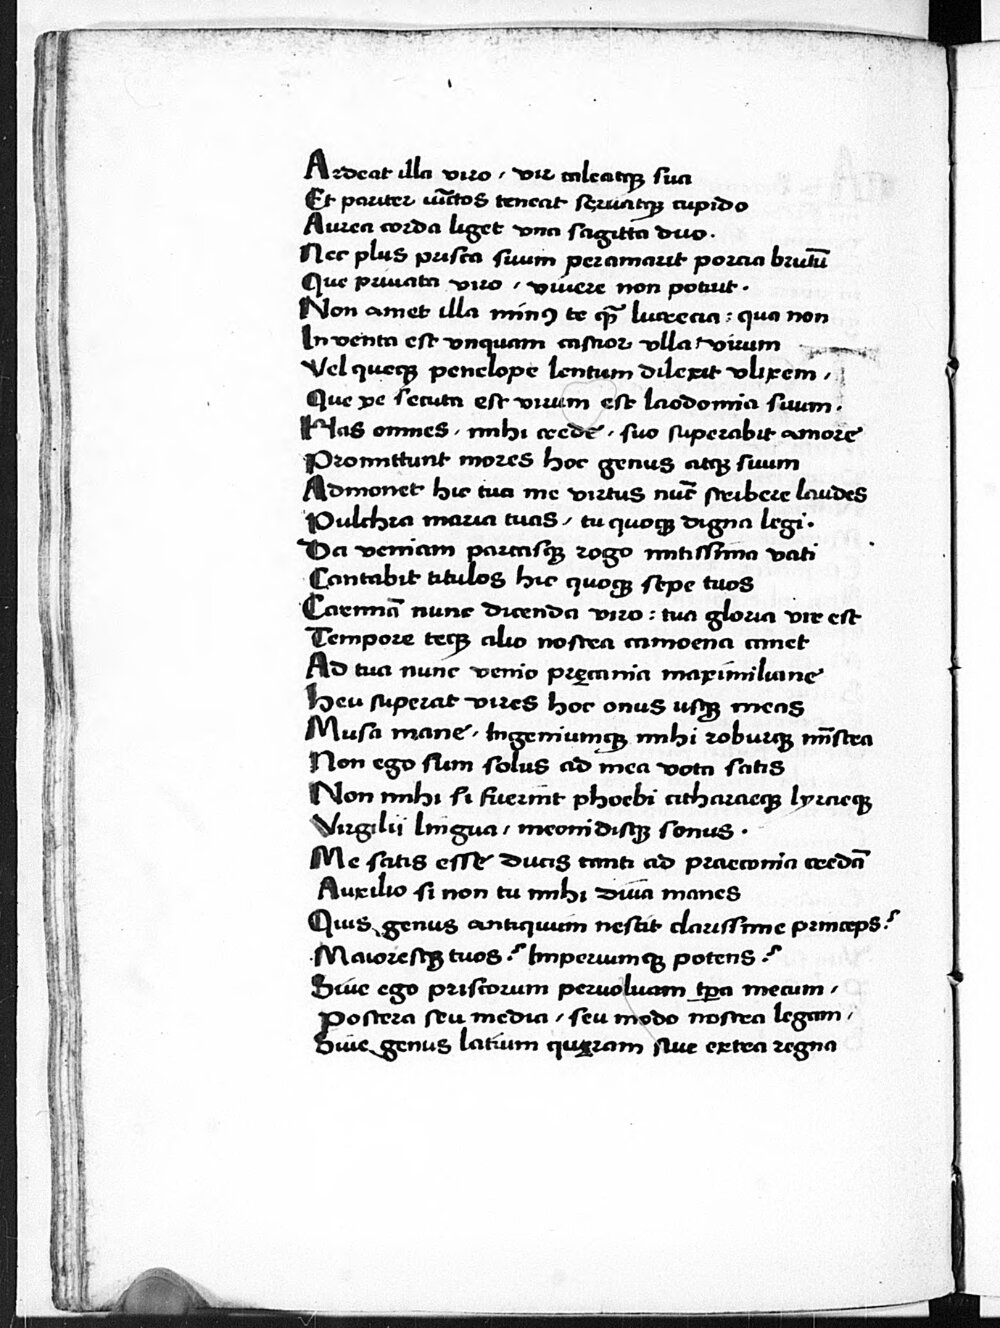 Ardeat illa viro, vir caleatqꝫ sua
Et pariter iu̅ctos teneat seruatqꝫ cupido
Aurea corda liget vna sagitta duo.
Nec plus prisca suum peramarit porcia brutu̅
Que priuata viro, viuere non potuit.
Non amet illa minꝰ te qꝫ̅ lucrecia: qua non
Inuenta est vnquam castior vlla virum
Vel queqꝫ penelope lentum dilexit vlixem,
Que ve secuta est virum est laodomia suum.
Has omnes, mihi crede, suo superabit amore
Promittunt mores hoc genus atqꝫ suum
Admonet hic tua me virtus nu̅c scribere laudes
Pulchra maria tuas, tu quoqꝫ digna legi.
Da veniam parcasqꝫ rogo mitissima vati
Cantabit titulos hic quoqꝫ sepe tuos
Carmina̅ nunc dicenda viro: tua gloria vir est
Tempore teqꝫ alio nostra camoena canet
Ad tua nunc venio pręconia maximiliane
Heu superat vires hoc onus usqꝫ meas
Musa mane, Ingeniumqꝫ mihi roburqꝫ mi̅stra
Non ego sum solus ad mea vota satis
Non mihi si fuerint phoebi citharaeqꝫ lyraeqꝫ
Virgilii lingua, meonidisqꝫ sonus.
Me satis esse ducis tanti ad praeconia creda̅
Auxilio si non tu mihi diua manes
Quis genus antiquum nescit clarissime princeps?
Maioresqꝫ tuos? Imperiumqꝫ potens?
Siue ego priscorum peruoluam tp̅a mecum,
Postera seu media, seu modo nostra legam,
Siue genus latium quęram siue extera regna